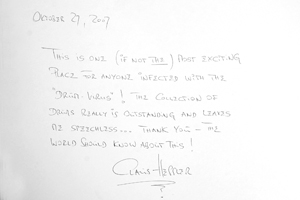 October 27, 2007
This is one (if not the) most exciting
place for anyone infected with the
"drum-virus"! The collection of
drums really is outstanding and leaves
me speechless... Thank you - the
world should know about this!
Claus Hessler